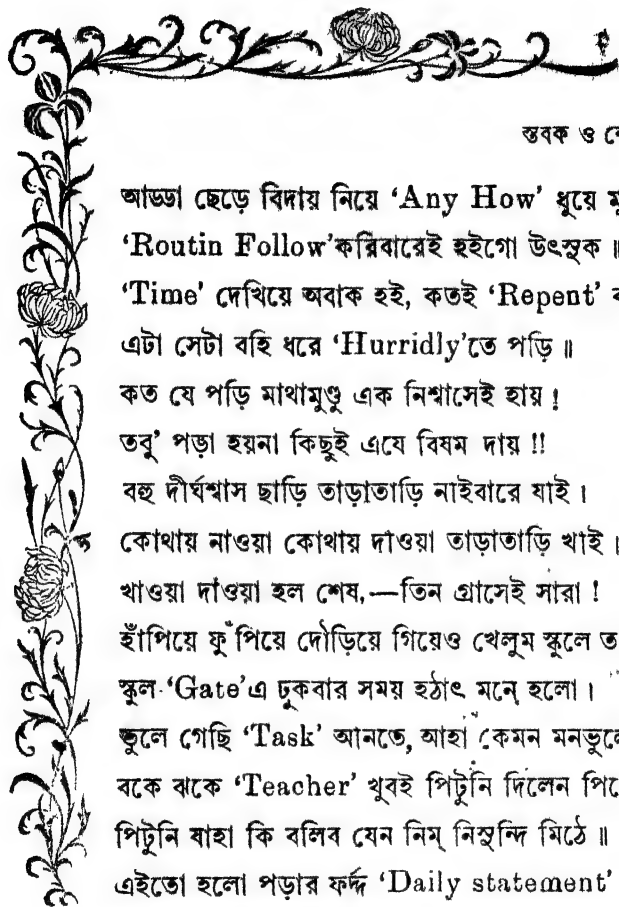 স্তবক ও
আড্ডা ছেড়ে বিদায় নিয়ে ‘Any How’ ধুয়ে
‘Routin Follow’করিবারেই হইগো উৎসুক ॥
‘Time’ দেখিয়ে অবাক হই, কতই ‘Repent’
এটা সেটা বহি ধরে ‘Hurridly’তে পড়ি ॥
কত যে পড়ি মাথামুণ্ডু এক নিশ্বাসেই হায় !
তবু’ পড়া হয়না কিছুই এযে বিষম দায় !!
বহু দীর্ঘশ্বাস ছাড়ি তাড়াতাড়ি নাইবারে যাই ।
কোথায় নাওয়া কোথায় দাওয়া তাড়াতাড়ি খাই ।
খাওয়া দাঁওয়া হল শেষ,—তিন গ্রাসেই সারা !
হাঁপিয়ে ফুঁপিয়ে দৌড়িয়ে গিয়েও খেলুম স্কুলে
স্কুল ‘Gate’এ ঢুকবার সময় হঠাৎ মনে হলো ।
ভুলে গেছি ‘Task’ আনতে, আহা কেমন মনভুলে
বকে ঝকে ‘Teacher’ খুবই পিটুনি দিলেন
পিটুনি যাহা কি বলিব যেন নিম্ নিস্থন্দি মিঠে ॥
এইতো হলো পড়ার ফর্দ্দ ‘Daily statement’